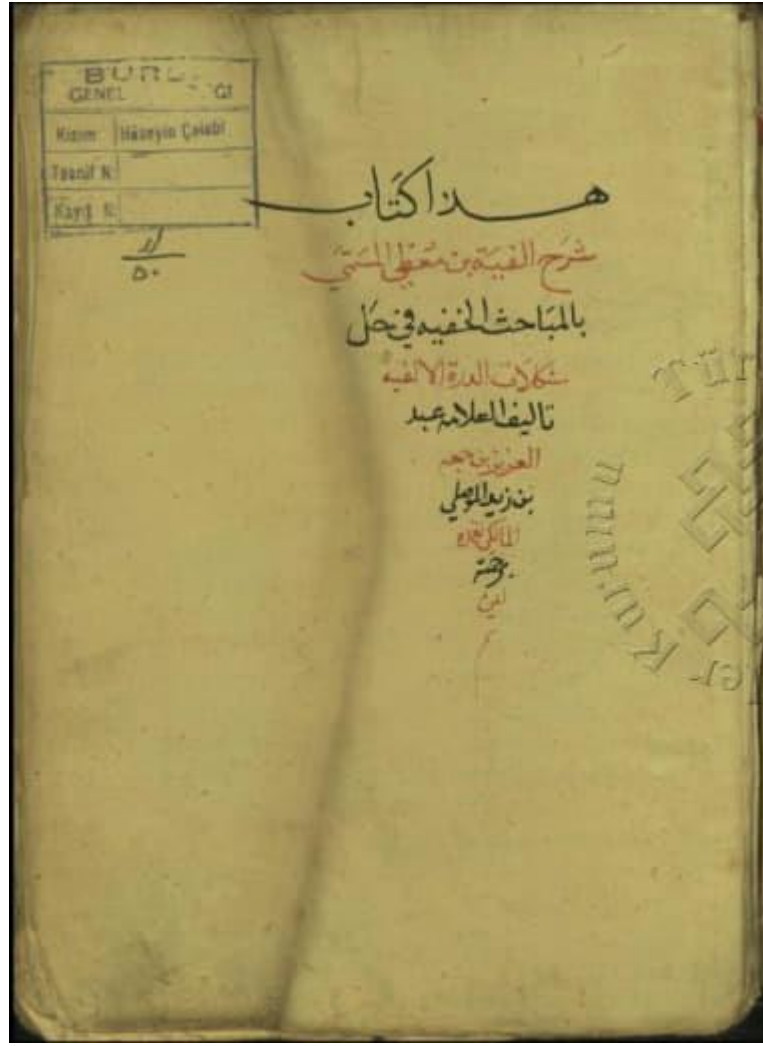 BUR
GENEL
Kısım Hüseyin Çelebi
Tasnif N.
Kayıt N.
٥٠
هذا كتاب
شرح الفية بن معطي المسمى
بالمباحث الخفيه في حل
مشكلات الدرة الالفيه
تاليف العلامه عبد
العزيز بن جمعه
بن زيد الموصلي
المالكي تغمده
برحمته
امين
م